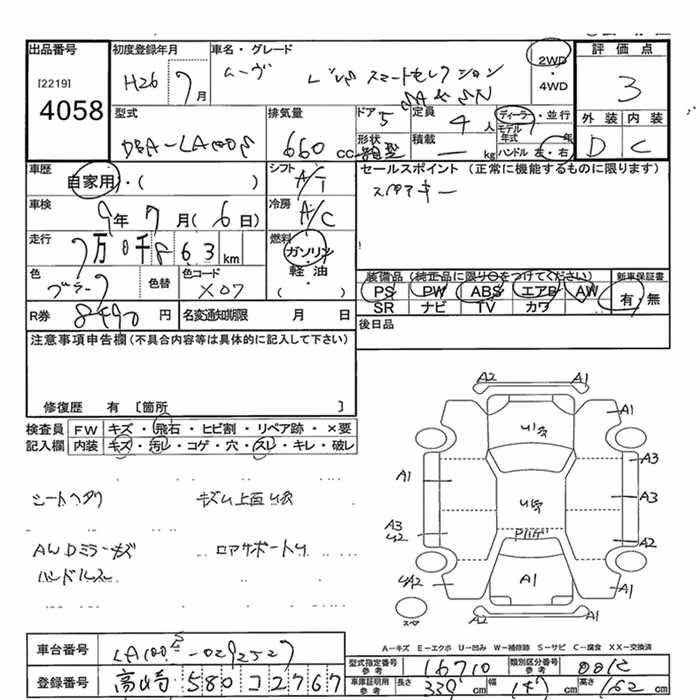 出品番号 初度登録年月 車名・グレード 評価点
[2219] 4058
H26 7月
ムーヴ スマートセレクション
2WD ・ 4WD
3
型式 排気量 ドア 定員 ディーラー・並行
5 4人 モデル年式 年
外装 内装
DBA-LA100S 660cc 形状 箱型 積載 ― kg ハンドル 左・右
D C
車歴 自家用・( ) シフト A/T
セールスポイント (正常に機能するものに限ります)
車検 9年7月(6日) 冷房 A/C
走行 7万0千863km
燃料 ガソリン・軽油・( )
色 色替 色コード X07
装備品(純正品に限り○をつけてください) 新車保証書
PS PW ABS エアB AW 有・無
SR ナビ TV カワ
R券 8490円 名変通知期限 月 日
後日品
注意事項申告欄(不具合内容等は具体的に記入して下さい)
修復歴 有 [箇所 ]
検査員記入欄 FW キズ・飛石・ヒビ割・リペア跡・×要
内装 キズ・汚レ・コゲ・穴・スレ・キレ・破レ
シートヘタリ
AWDミラーキズ
ハンドルスレ
A2 A1
A1
A1 A3
A3
A3 U2 A2
UA2 A1 A1
A2 A1
スペア
A―キズ E―エクボ U―凹み W―補修跡 S―サビ C―腐食 XX―交換済
車台番号 LA100S-0292527
型式指定番号 参考 16710 類別区分番号 参考
登録番号 高崎 580 コ 2767
車庫証明用 参考 長 339cm 幅 147cm 高さ 162cm